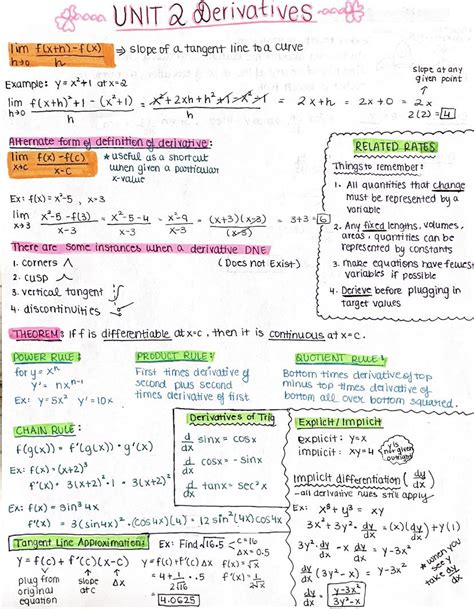 UNIT 2 Derivatives
lim h→0 f(x+h)-f(x) / h ⇒ slope of a tangent line to a curve
slope at any
given point
Example: y = x²+1 at x=2
lim h→0 f(x+h)²+1 - (x²+1) / h = x²+2xh+h²+1-x²-1 / h = 2x+h = 2x+0 = 2x
2(2) = 4
Alternate form of definition of derivative:
lim x→c f(x)-f(c) / x-c
*useful as a shortcut
when given a particular
x-value
Ex: f(x) = x²-5, x=3
lim x→3 x²-5-f(3) / x-3 = x²-5-4 / x-3 = x²-9 / x-3 = (x+3)(x-3) / (x-3) = 3+3 = 6
There are some instances when a derivative DNE
(Does not Exist)
1. corners
2. cusp
3. vertical tangent
4. discontinuities
RELATED RATES
Things to remember:
1. All quantities that change
must be represented by a
variable
2. Any fixed lengths, volumes,
areas, quantities can be
represented by constants
3. make equations have fewest
variables if possible
4. Derieve before plugging in
target values
THEOREM: If f is differentiable at x=c, then it is continuous at x=c.
POWER RULE:
for y = xⁿ
y' = nxⁿ⁻¹
Ex: y=5x² y'=10x
PRODUCT RULE:
First times derivative of
second plus second
times derivative of first
QUOTIENT RULE:
Bottom times derivative of top
minus top times derivative of
bottom all over bottom squared.
CHAIN RULE:
f(g(x)) = f'(g(x)) · g'(x)
Ex: f(x) = (x+2)³
f'(x) = 3(x+2)² · 1 = 3(x+2)²
Ex: f(x) = sin³4x
f'(x) = 3(sin4x)² · (cos4x)(4) = 12 sin²(4x)cos4x
Derivatives of Trig
d/dx sinx = cosx
d/dx cosx = -sinx
d/dx tanx = sec²x
Explicit/Implicit
explicit: y=x
implicit: xy=4
y is
not given
outright
Implicit differentiation (dy/dx)
-all derivative rules still apply
Ex: x³+y³ = xy
3x²+3y² · dy/dx = (x) dy/dx + y(1)
3y² · dy/dx - x dy/dx = y-3x²
dy/dx (3y²-x) = y-3x²
dy/dx = y-3x² / 3y²-x
*when you
see y
take dy/dx
Tangent Line Approximation:
y = f(c) + f'(c)(x-c)
plug from
original
equation
slope
at c
Δx
Ex: Find √16.5
c=16
Δx=0.5
y = f(c)+f'(c)Δx
= 4 + 1/2√16 (.5)
4.0625
f(x) = √x
f'(x) = 1/2√x